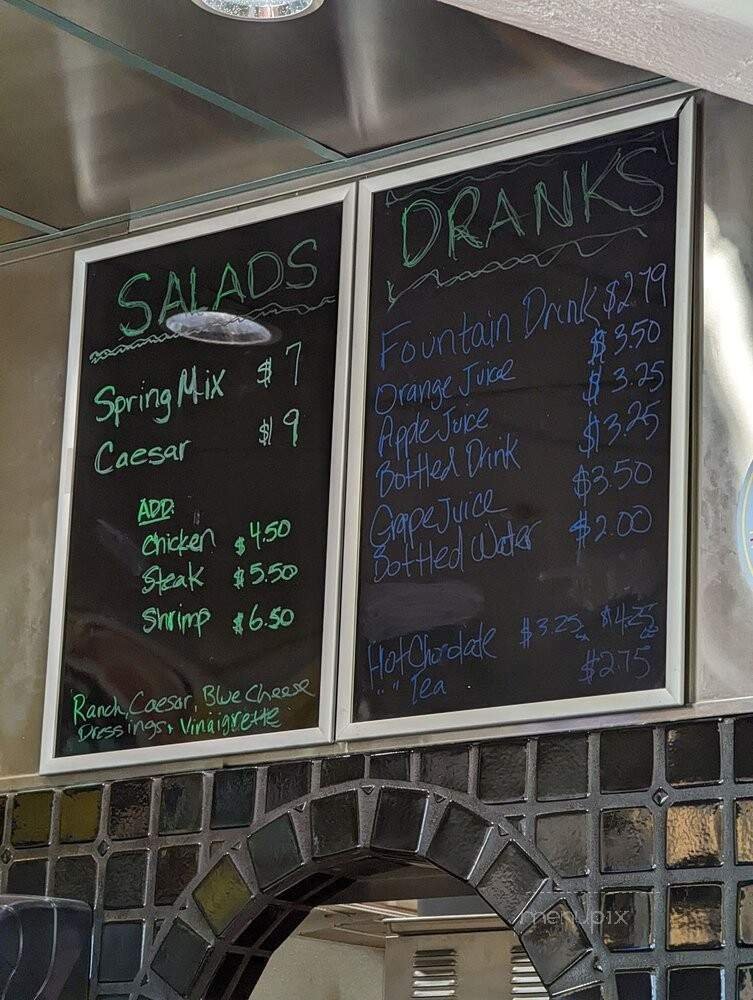 SALADS
Spring Mix $7
Caesar $9
ADD:
Chicken $4.50
Steak $5.50
Shrimp $6.50
Ranch, Caesar, Blue Cheese
Dressings, Vinaigrette
DRANKS
Fountain Drink $2.79
Orange Juice $3.50
Apple Juice $3.25
Bottled Drink $3.25
Grape Juice $3.50
Bottled Water $2.00
Hot Chocolate $3.25 $4.25
" " Tea $2.75
menupix